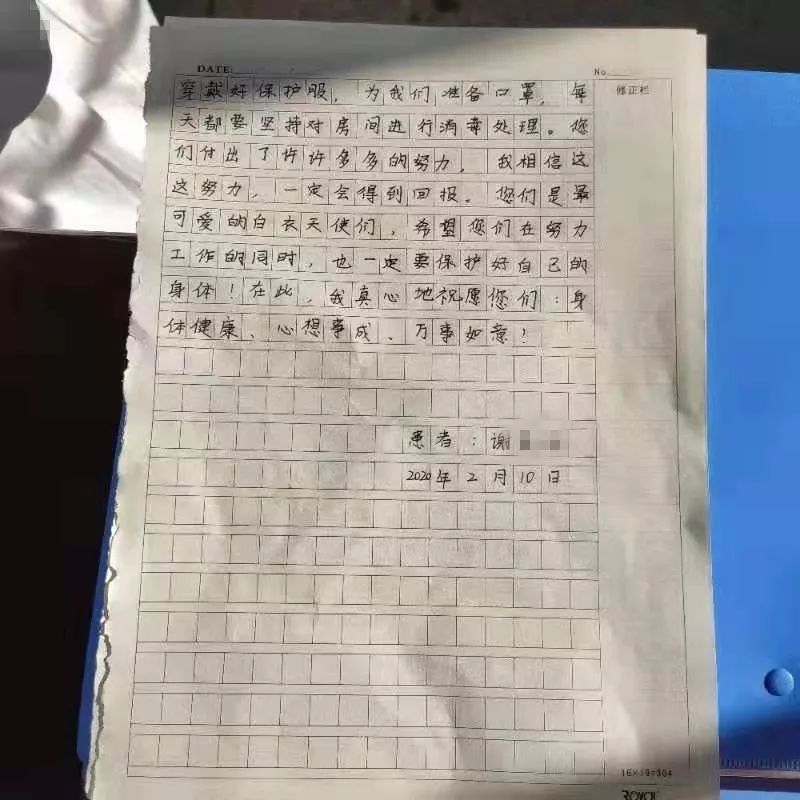 DATE:
No
修正栏
穿戴好保护服,为我们准备口罩,每
天都要坚持对房间进行消毒处理。您
们付出了许许多多的努力,我相信这
这努力,一定会得到回报。您们是最
可爱的白衣天使们,希望您们在努力
工作的同时,也一定要保护好自己的
身体!在此,我真心地祝愿您们:身
体健康、心想事成、万事如意!
患者:谢
2020年2月10日
16×19=304